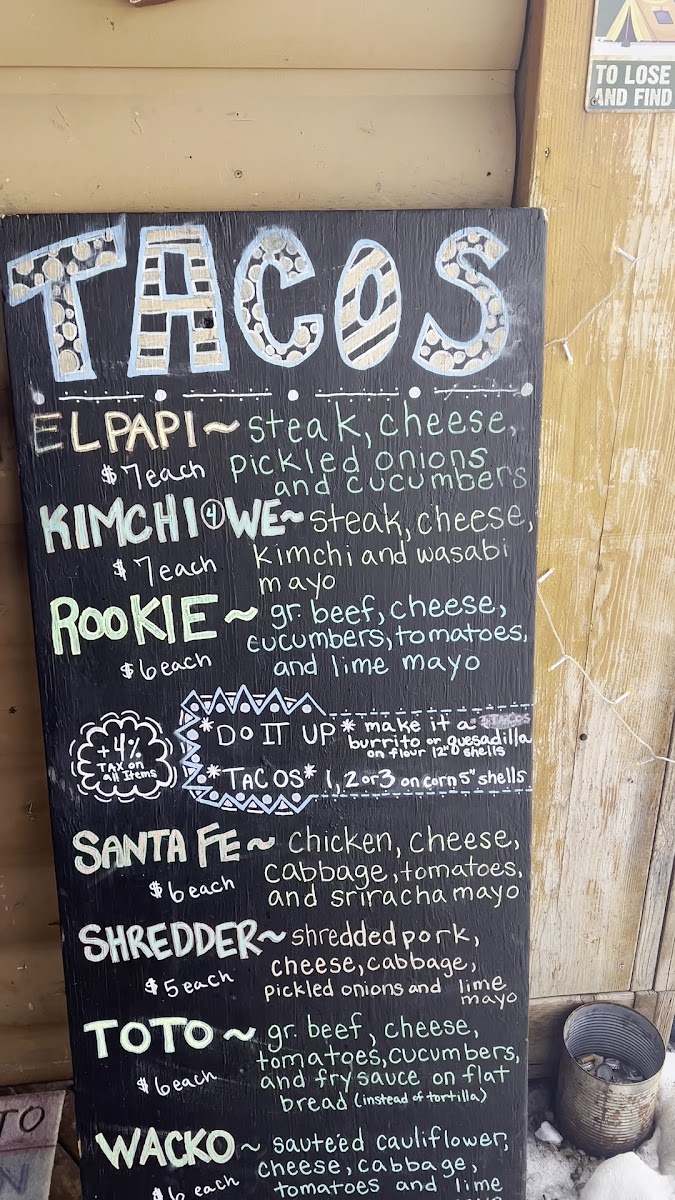 TO LOSE
AND FIND
TACOS
EL PAPI~ steak, cheese,
$7 each pickled onions
and cucumbers
KIMCHI 4 WE~ steak, cheese,
$7 each kimchi and wasabi
mayo
ROOKIE ~ gr. beef, cheese,
cucumbers, tomatoes,
$6 each and lime mayo
+4%
TAX on
all Items
*DO IT UP* make it a
burrito or quesadilla
on flour 12" shells
*TACOS* 1, 2 or 3 on corn 5" shells
SANTA FE~ chicken, cheese,
$6 each cabbage, tomatoes,
and sriracha mayo
SHREDDER~ shredded pork,
$5 each cheese, cabbage,
pickled onions and lime
mayo
TOTO ~ gr. beef, cheese,
tomatoes, cucumbers,
$6 each and fry sauce on flat
bread (instead of tortilla)
WACKO ~ sauteéd cauliflower,
cheese, cabbage,
$6 each tomatoes and lime
TO